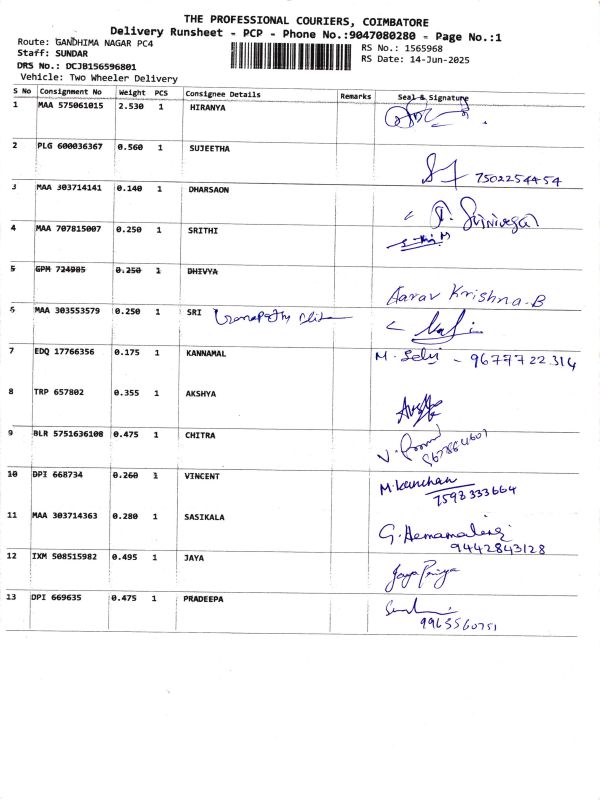 THE PROFESSIONAL COURIERS, COIMBATORE
Delivery Runsheet - PCP - Phone No.:9047080280 - Page No.:1
Route: GANDHIMA NAGAR PC4
RS No.: 1565968
Staff: SUNDAR
RS Date: 14-Jun-2025
DRS No.: DCJB156596801
Vehicle: Two Wheeler Delivery
S No Consignment No Weight PCS Consignee Details Remarks Seal & Signature
1 MAA 575061015 2.530 1 HIRANYA
2 PLG 600036367 0.560 1 SUJEETHA
7502254454
3 MAA 303714141 0.140 1 DHARSAON
S. Srinivasan
4 MAA 707815007 0.250 1 SRITHI
5 GPM 724905 0.250 1 DHIVYA
Aarav Krishna-B
6 MAA 303553579 0.250 1 SRI Ganapathy
7 EDQ 17766356 0.175 1 KANNAMAL M. Selvi - 9677722314
8 TRP 657802 0.355 1 AKSHYA
9 BLR 5751636108 0.475 1 CHITRA
10 DPI 668734 0.260 1 VINCENT M.kanchan
7593333664
11 MAA 303714363 0.280 1 SASIKALA G.Hemamalini
9442843128
12 IXM 508515982 0.495 1 JAYA Jaya Priya
13 DPI 669635 0.475 1 PRADEEPA
9965560751